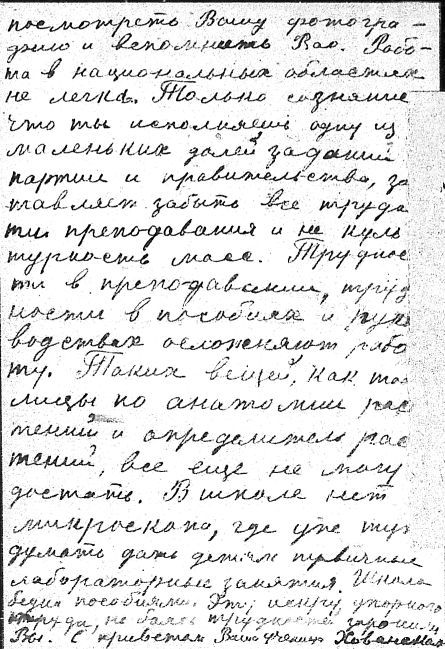 посмотреть Вашу фотогра-
фию и вспомнить Вас. Рабо-
та в национальных областях
не легка. Только сознание
что ты исполняешь одну из
маленьких долей заданий
партии и правительства, за
ставляет забыть все трудн
ти преподавания и не куль
турность масс. Труднос
ти в преподавании, труд
ности в пособиях и руко
водствах осложняют рабо
ту. Таких вещей, как таб
лицы по анатомии рас
тений и определитель рас
тений, все еще не могу
достать. В школе нет
микроскопа, где уже тут
думать дать детям первичные
лабораторные занятия. Школа
бедна пособиями. Эту искру упорного
труда, не боясь трудностей заронили
Вы. С приветом Ваша ученица Хованская